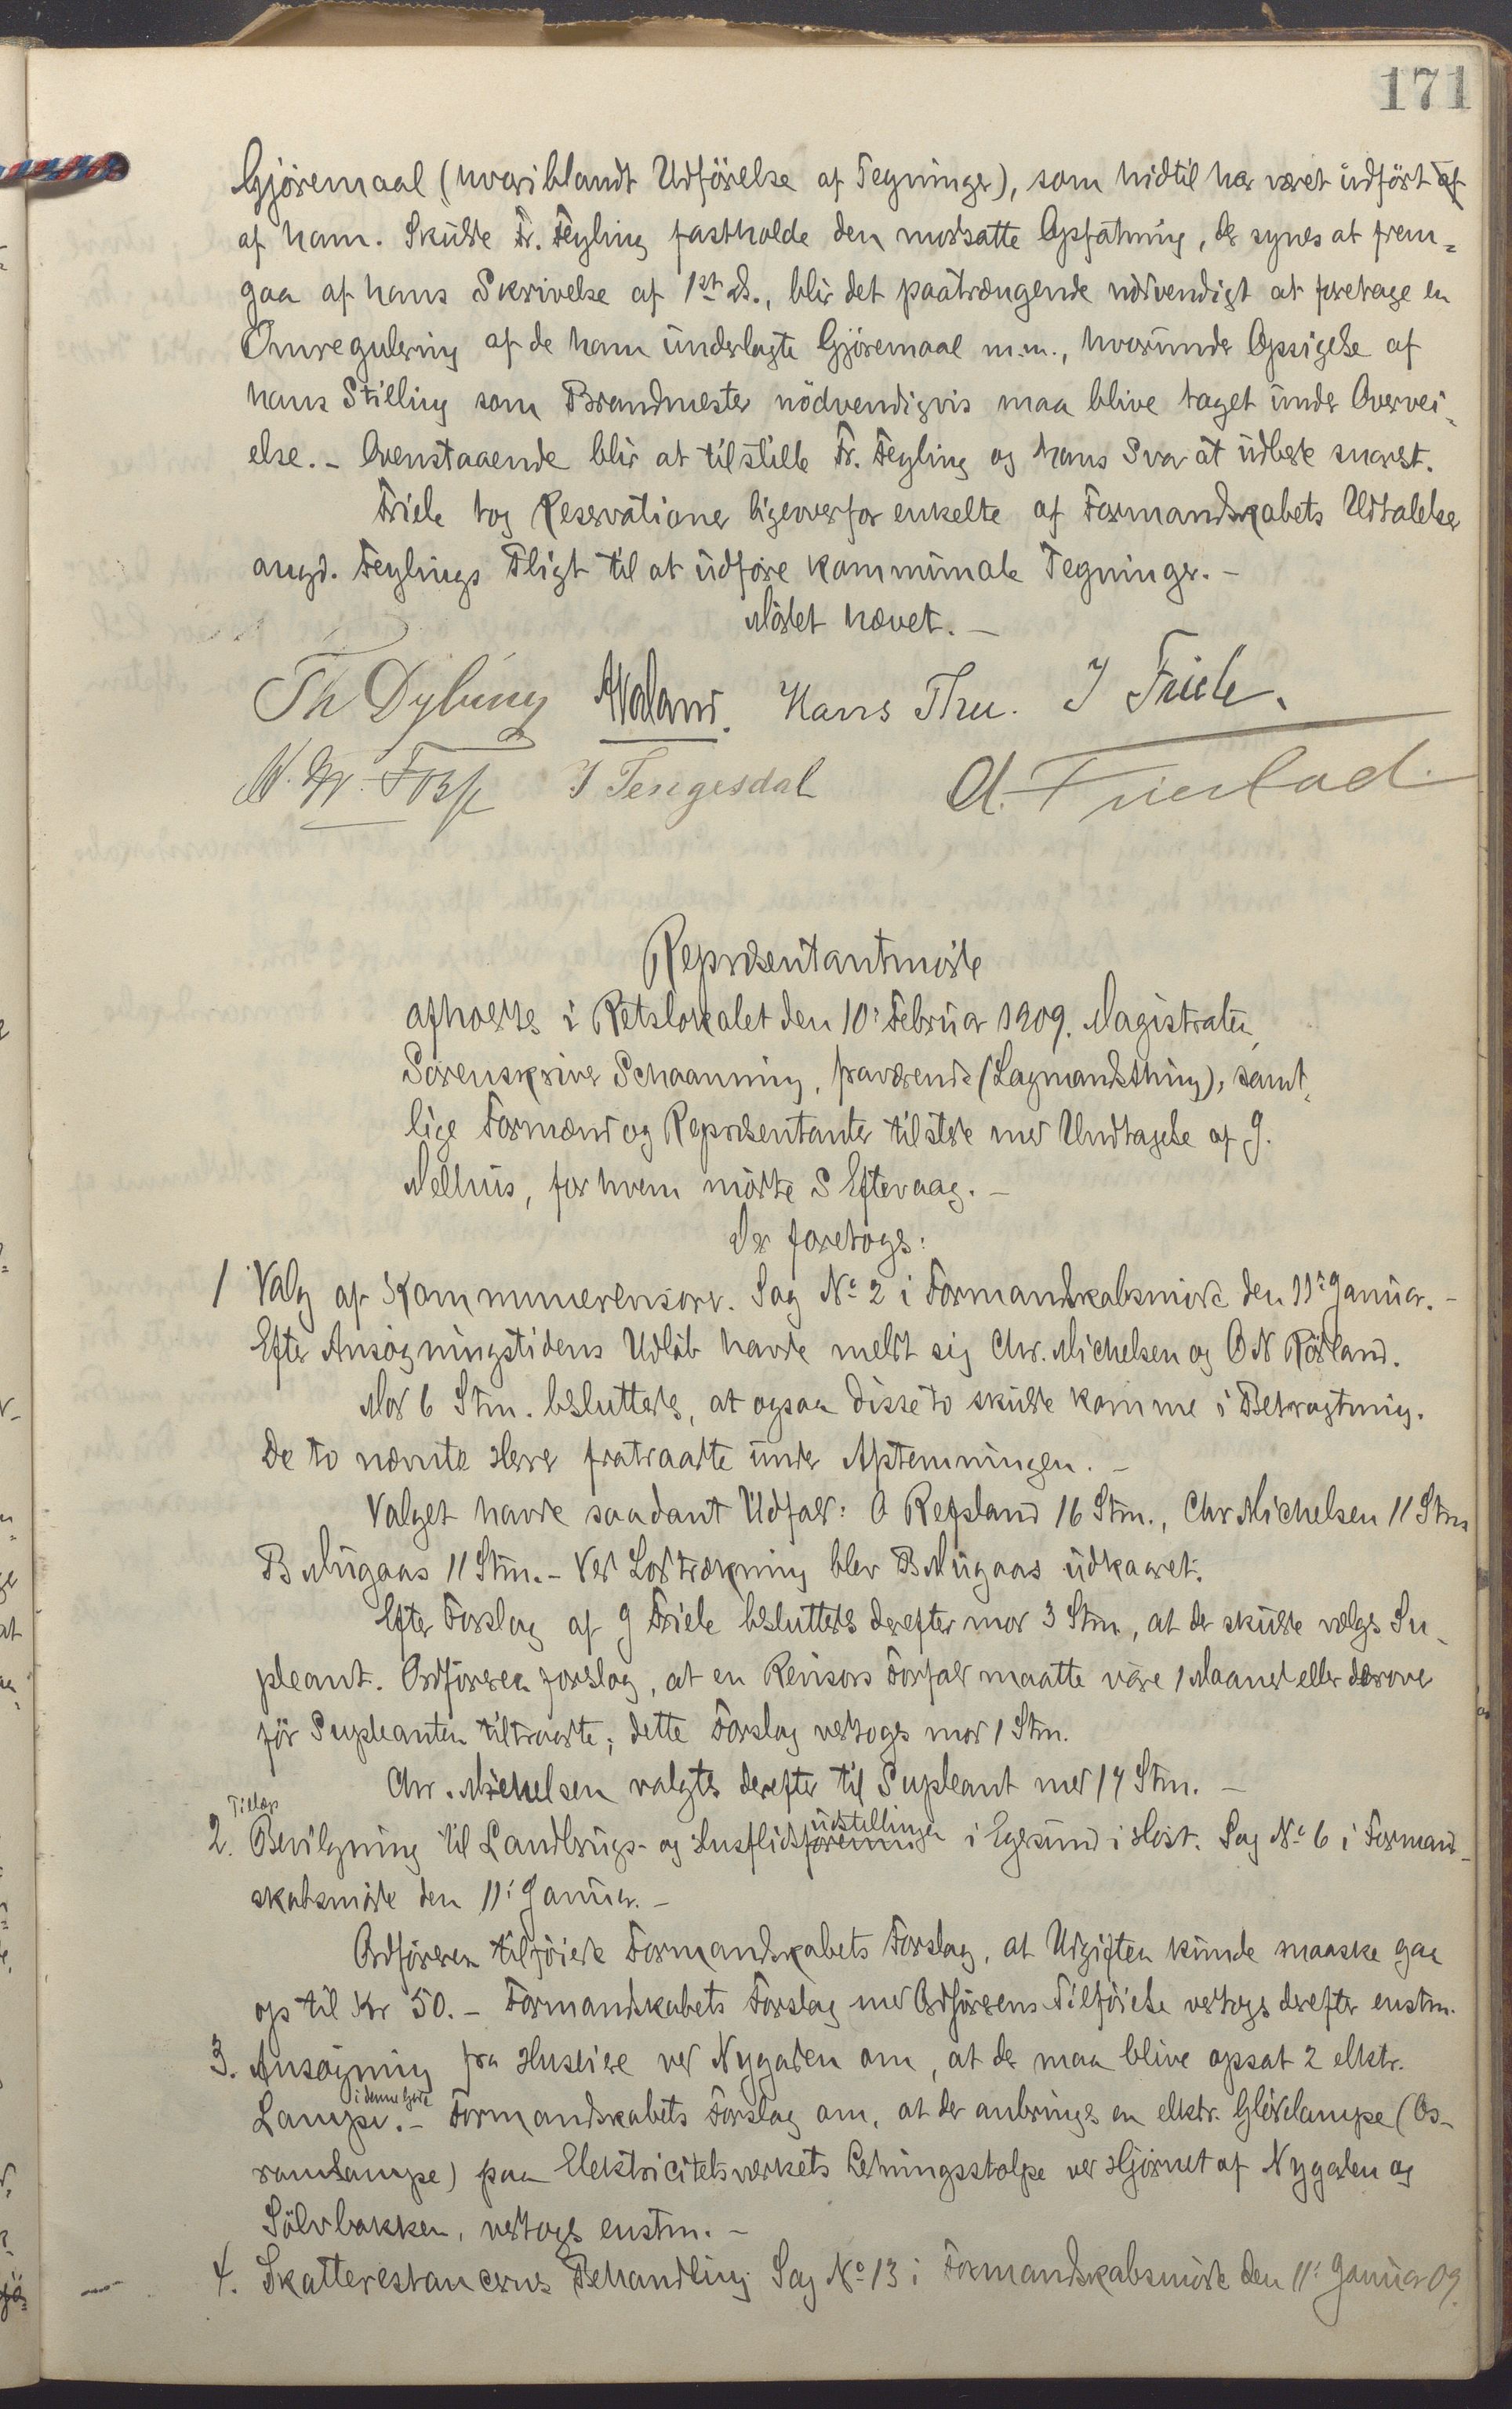 171
Gjöremaal (hvoriblandt Udförelse af Tegninger), som hidtil har været udfört af
af ham. Skulde Fr. Feyling fastholde den modsatte Opfatning, der synes at frem-
gaa af hans Skrivelse af 1st ds., blir det paatrængende nödvendigt at foretage en
Omregulering af de ham underlagte Gjöremaal m.m., hvorunder Opsigelse af
hans Stilling som Brandmester nödvendigvis maa blive taget under Overvei-
else. – Ovenstaaende blir at tilstille Fr. Feyling og hans Svar at udbede snarest.
Friele tog Reservationer ligeoverfor enkelte af Formandskabets Udtalelser
angd. Feylings Pligt til at udföre kommunale Tegninger. –
Mödet hævet. –
Th Dybing Aaland. Hans Thu. J Friele.
J Tengesdal A. Friestad
Repræsentantmöde
afholdtes i Retslokalet den 10: Februar 1909. Magistraten,
Sorenskriver Schaanning, fraværende (Lagmandsthing), samt-
lige Formænd og Repræsentanter tilstede med Undtagelse af J.
Melhus, for hvem mödte S Eftevaag. –
Der foretoges:
1 Valg af Kommunerevisorer. Sag No 2 i Formandskabsmöde den 11: Januar. –
Efter Ansögningstidens Udlöb havde meldt sig Chr. Michelsen og O N Rödland.
Mod 6 Stm. besluttedes, at ogsaa disse to skulde komme i Betragtning.
De to nævnte Herrer fratraadte under Afstemningen. –
Valget havde saadant Udfald: O Refsland 16 Stm., Chr Michelsen 11 Stm
B Mugaas 11 Stm. – Ved Lodtrækning blev B Mugaas udkaaret.
Efter Forslag af J Friele besluttedes derefter mod 3 Stm, at der skulde vælges Su-
pleant. Ordföreren forslog, at en Revisors Forfald maatte være 1 Maaned eller derover
för Supleanten tiltraadte; dette Forslag vedtoges mod 1 Stm.
Chr. Michelsen valgtes derefter til Supleant med 14 Stm. –
Tillæg
2. Bevilgning til Landbrugs- og Husflidsforening udstillinger i Egersund i Höst. Sag No 6 i Formand-
skabsmöde den 11: Januar. –
Ordföreren tilföiede Formandskabets Forslag, at Udgiften kunde maaske gaa
op til Kr 50. – Formandskabets Forslag med Ordförerens Tilföielse vedtoges derefter enstm.
3. Ansögning fra Huseiere ved Nygaden om, at der maa blive opsat 2 elktr.
Lamper i denne Gade. – Formandskabets Forslag om, at der anbringes en elktr. Glödelampe (Os-
ramlampe) paa Elektricitetsværkets Ledningsstolpe ved Hjörnet af Nygaden og
Sölvbakken, vedtoges enstm. –
4. Skatterestancernes Behandling Sag No 13 i Formandskabsmöde den 11: Januar 09.